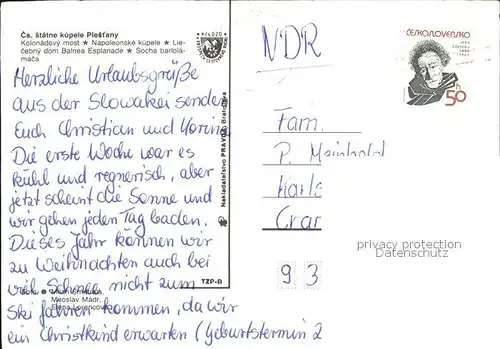 Čs. štátne kúpele Piešťany
Kolonádový most ★ Napoleonské kúpele ★ Lie-
čebný dom Balnea Esplanade ★ Socha barlolá-
mača
Herzliche Urlaubsgrüße
aus der Slowakei senden
Euch Christian und
Die erste Woche war es
kühl und regnerisch, aber
jetzt scheint die Sonne und
wir gehen jeden Tag baden.
Dieses Jahr können wir
zu Weihnachten auch bei
viel Schnee nicht zum
Miroslav Mádr,
Ski fahren kommen, da wir
ein Christkind erwarten (Geburtstermin 2
Nakladateľstvo PRAVDA Bratislava
TZP-B
NDR
ČESKOSLOVENSKO
50h
Fam.
P. Meinhold
Karls
Cran
privacy protection
Datenschutz
9 3